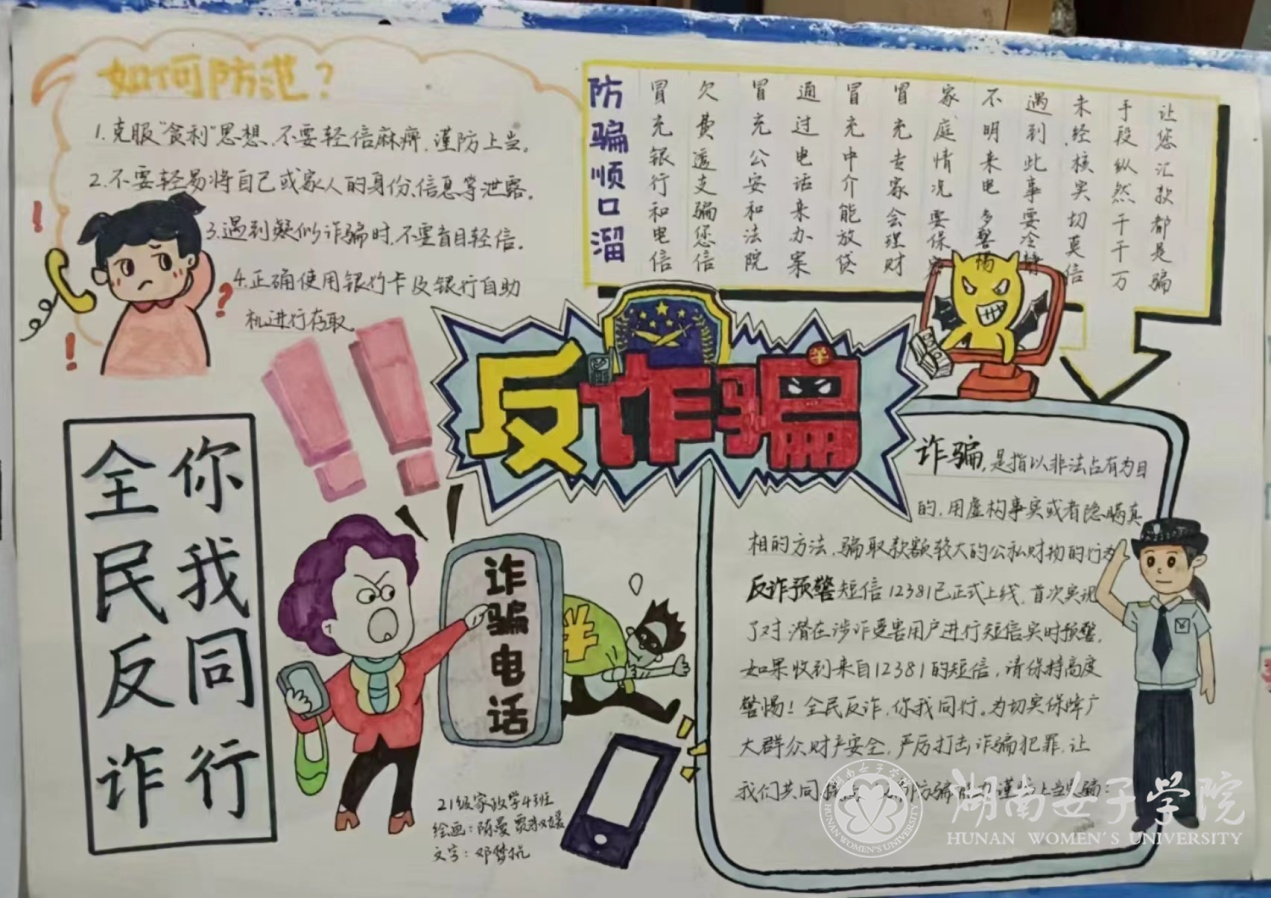 如何防范?
1.克服“贪利”思想,不要轻信麻痹,谨防上当。
2.不要轻易将自己或家人的身份、信息等泄露。
3.遇到疑似诈骗时,不要盲目轻信。
4.正确使用银行卡及银行自助
机进行存取。
防骗顺口溜
冒充银行和电信
欠费透支骗您信
冒充公安和法院
通过电话来办案
冒充中介能放贷
冒充专家会理财
家庭情况要保
不明来电多警惕
遇到此事要冷静
未经核实切莫信
手段纵然千千万
让您汇款都是骗
反诈骗
全民反诈
你我同行
诈骗电话
诈骗,是指以非法占有为目
的,用虚构事实或者隐瞒真
相的方法,骗取款额较大的公私财物的行为
反诈预警短信12381已正式上线,首次实现
了对潜在涉诈受害用户进行短信实时预警。
如果收到来自12381的短信,请保持高度
警惕!全民反诈,你我同行。为切实保障广
大群众财产安全,严厉打击诈骗犯罪,让
我们共同 防骗 谨 上当 骗
21级家政学4班
绘画:陈曼
文字:邓梦
湖南女子学院
HUNAN WOMEN'S UNIVERSITY